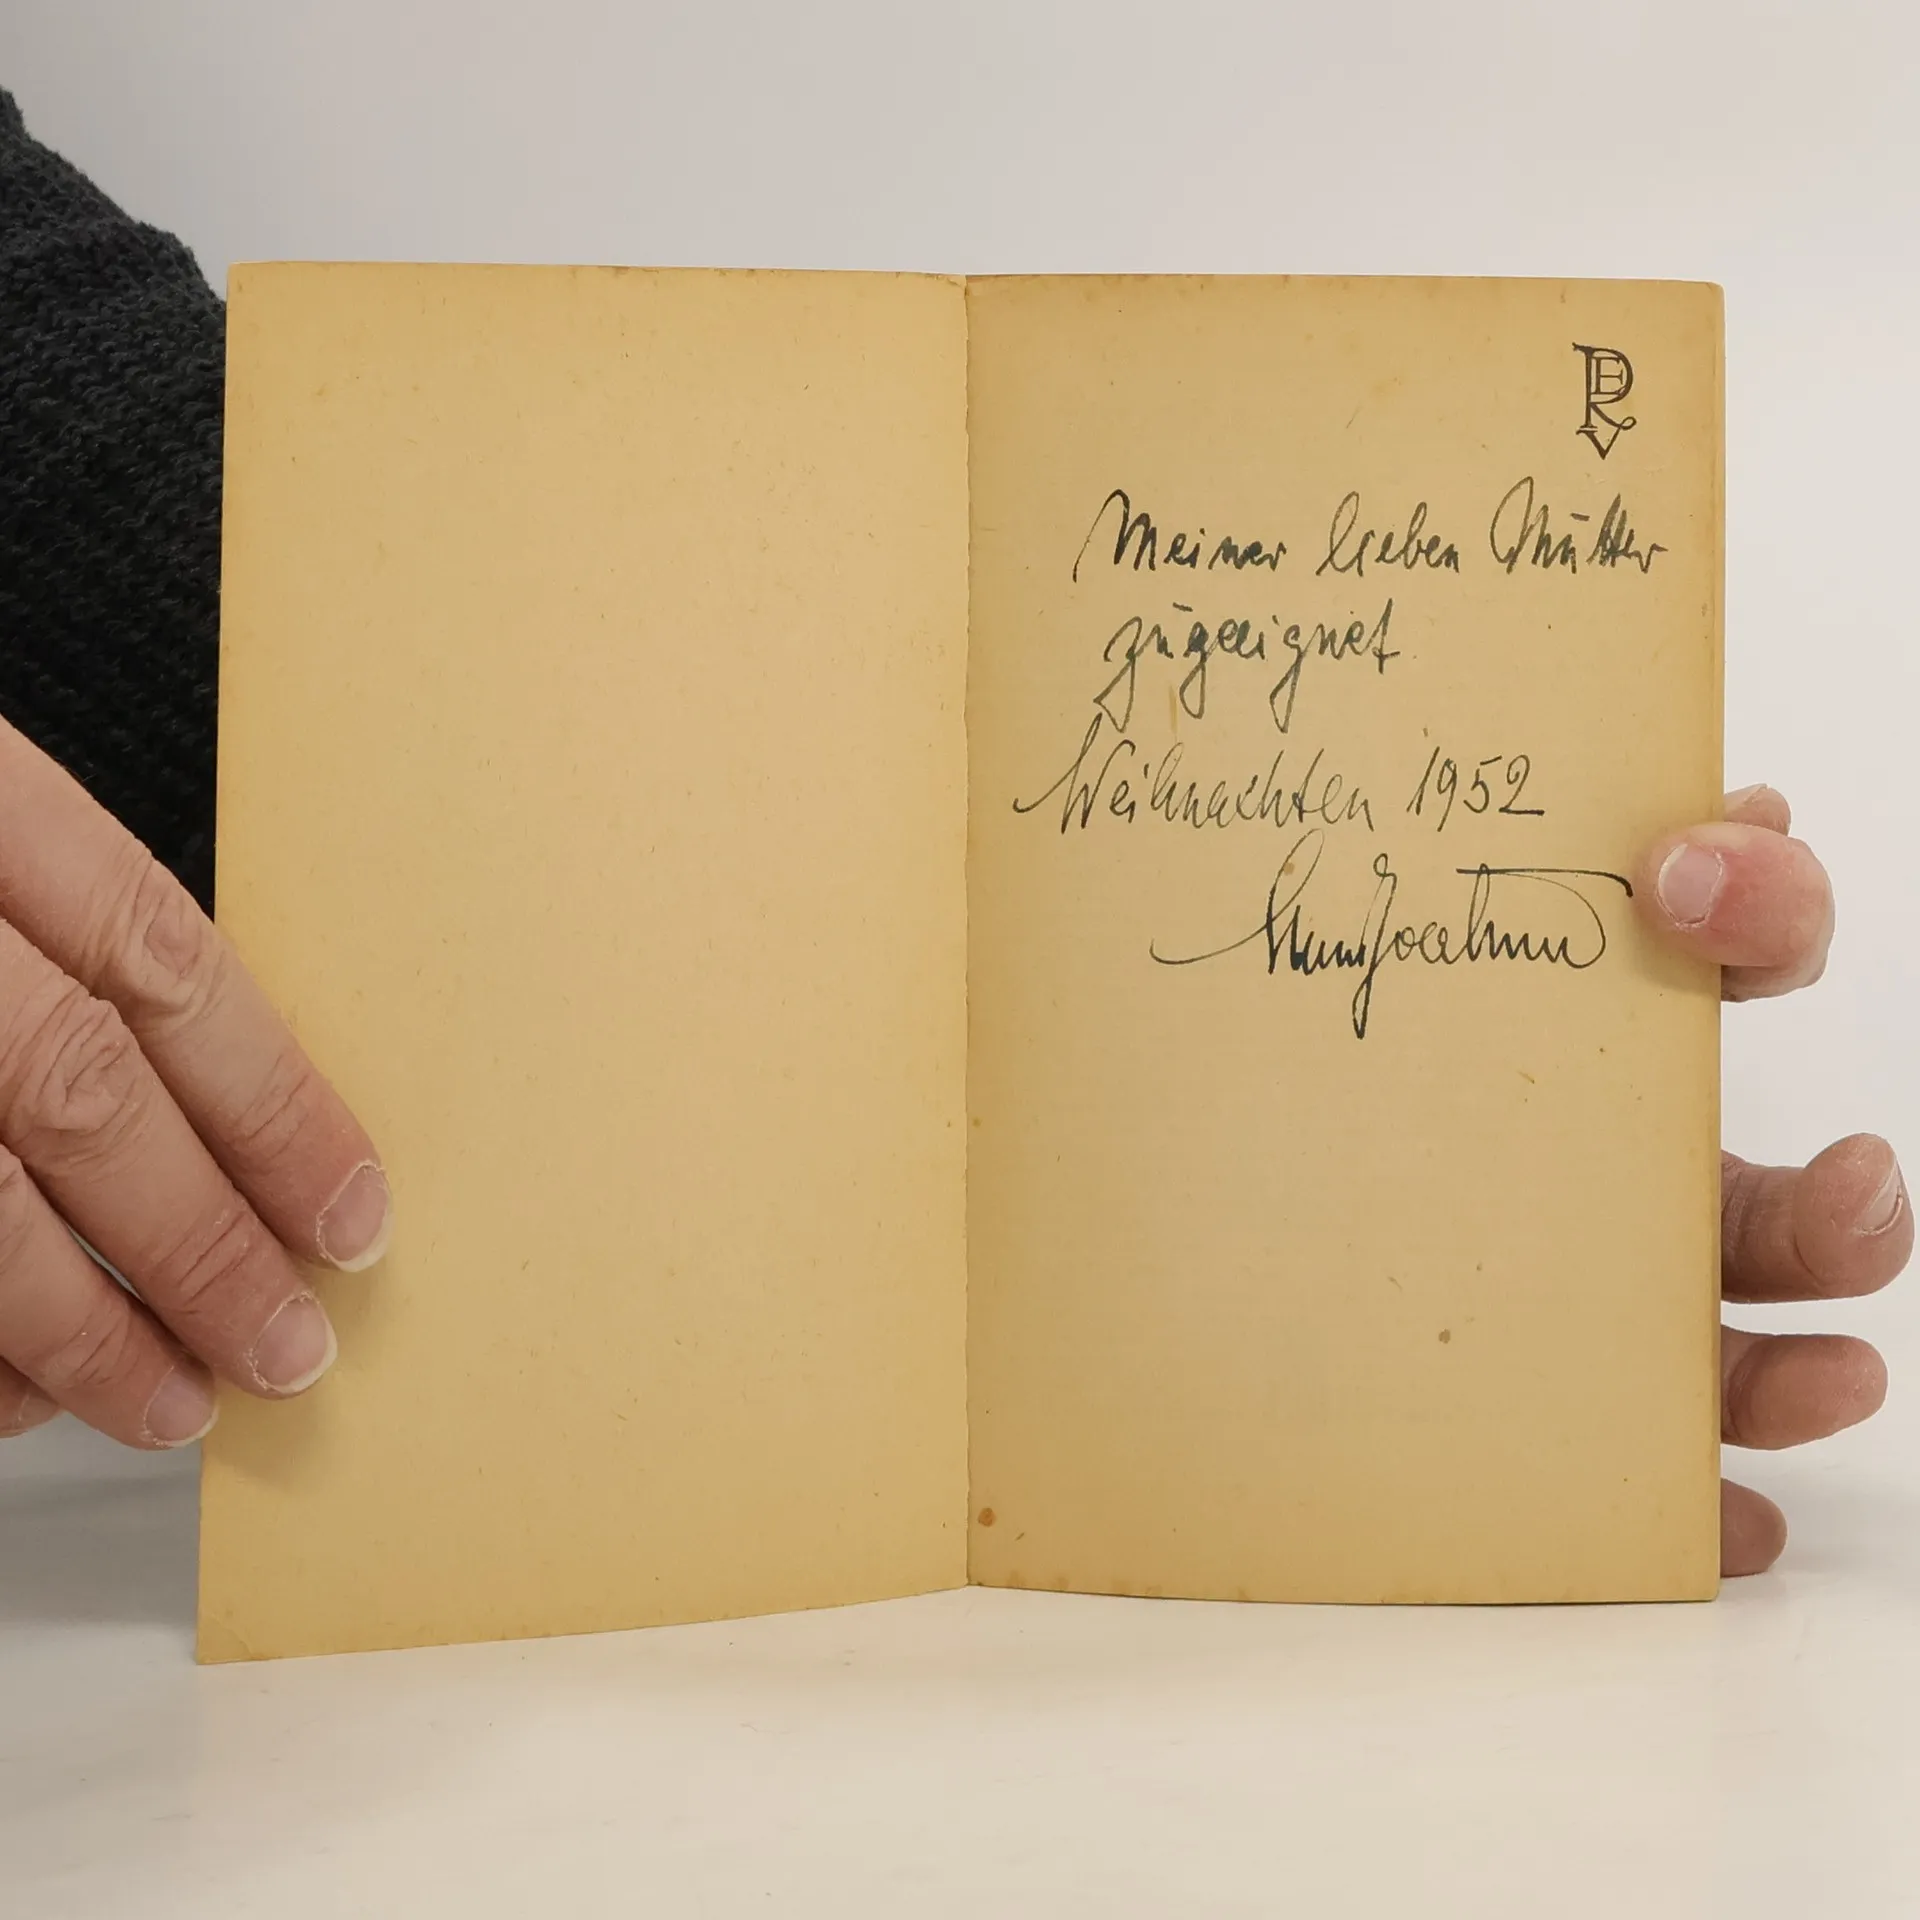 Meiner lieben Mutter
zugeeignet
Weihnachten 1952
Hans Joachim